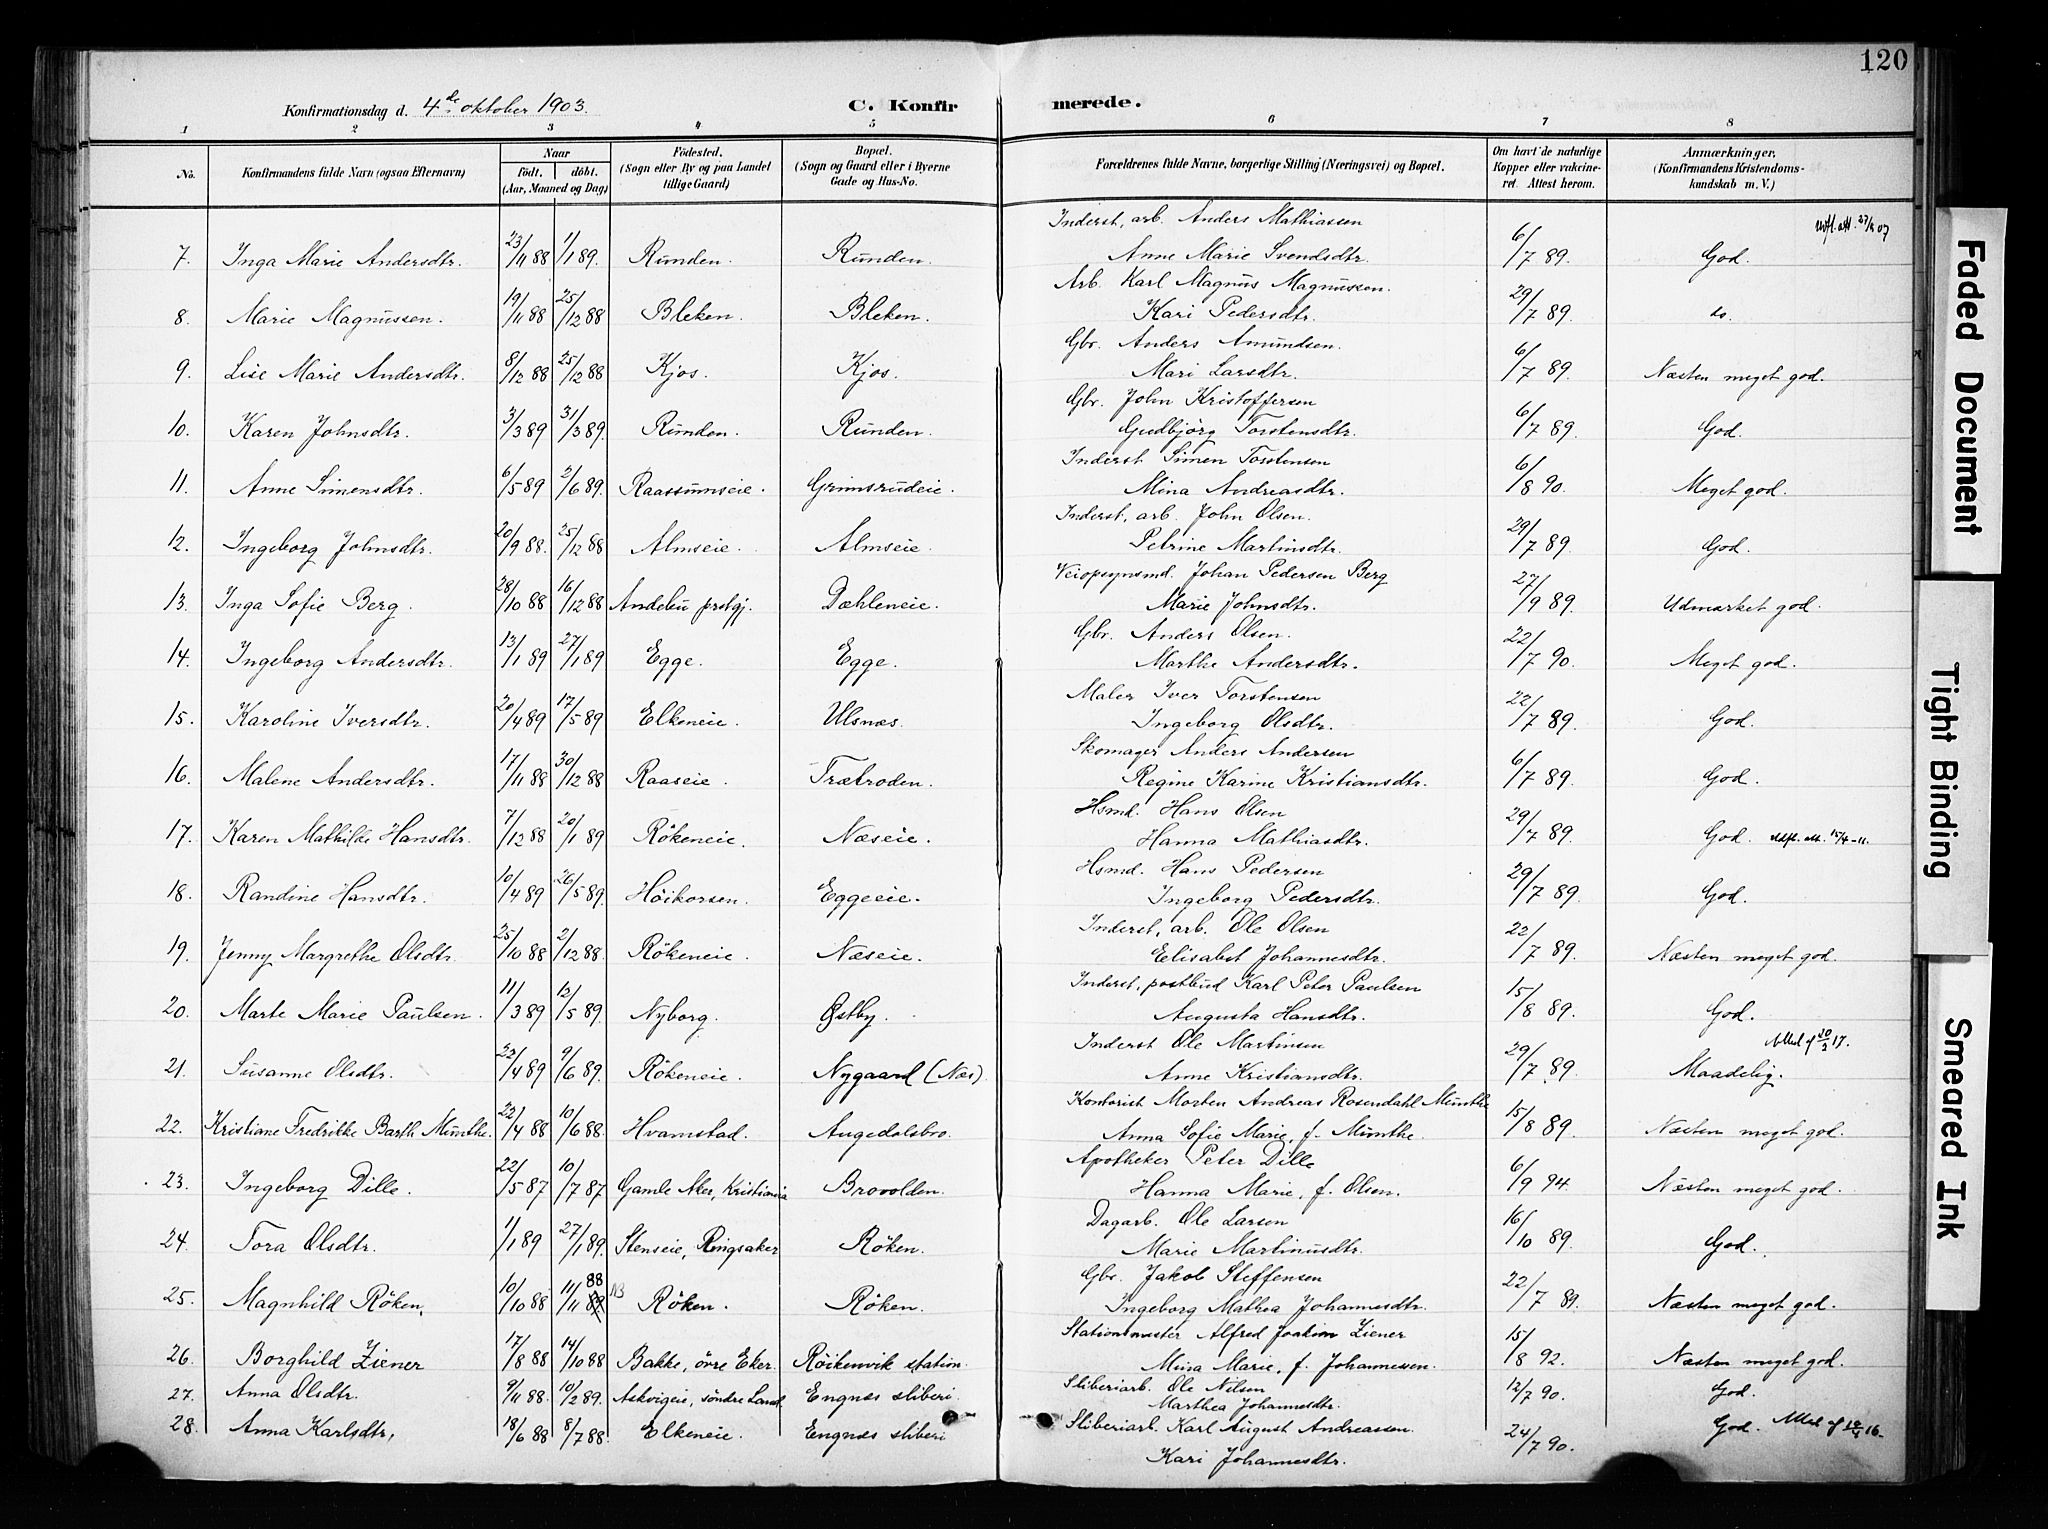 120
Konfirmationsdag d. 4de oktober 1903. C. Konfirmerede.
1 2 3 4 5 6 7 8
No. Konfirmandens fulde Navn (ogsaa Efternavn) Naar født. døbt. (Aar, Maaned og Dag) Fødested. (Sogn eller By og paa Landet tillige Gaard) Bopæl. (Sogn og Gaard eller i Byerne Gade og Hus-No. Forældrenes fulde Navne, borgerlige Stilling (Næringsvei) og Bopæl. Om havt de naturlige Kopper eller vakcineret. Attest herom. Anmærkninger. (Konfirmandens Kristendomskundskab m. V.)
Inderst, arb. Anders Mathiassen
7. Inga Marie Andersdtr. 23/11 88 1/1 89. Runden. Runden. Anne Marie Svendsdtr. 6/7 89. God.
Arb. Karl Magnus Magnussen.
8. Marie Magnussen. 19/11 88 25/12 88 Bleken. Bleken. Kari Pedersdtr. 29/7 89. do.
Gbr. Anders Amundsen.
9. Lise Marie Andersdtr. 8/12 88 25/12 88 Kjos. Kjos. Mari Larsdtr. 6/7 89. Næsten meget god.
Gbr. John Kristoffersen
10. Karen Johnsdtr. 3/3 89 31/3 89. Runden. Runden. Gudbjørg Torstensdtr. 6/7 89. God.
Inderst Simen Torstensen
11. Anne Simensdtr. 6/5 89 2/6 89. Raassumseie. Grimsrudeie. Mina Andreasdtr. 6/8 90. Meget god.
Inderst, arb. John Olsen.
12. Ingeborg Johnsdtr. 20/9 88. 25/12 88 Almseie. Almseie. Petrine Martinsdtr. 29/7 89. God.
Veiopsynsmd. Johan Pedersen Berg
13. Inga Sofie Berg. 28/10 88 16/12 88 Andebu prstgj. Dæhleneie. Marie Johnsdtr. 27/9 89. Udmærket god.
Gbr. Anders Olsen.
14. Ingeborg Andersdtr. 13/1 89 27/1 89 Egge. Egge. Marthe Andersdtr. 22/7 90. Meget god.
Maler Iver Torstensen
15. Karoline Iversdtr. 20/4 89 17/5 89 Elkeneie. Ulsnæs. Ingeborg Olsdtr. 22/7 89. God.
Skomager Anders Andersen
16. Malene Andersdtr. 17/11 88 30/12 88 Raaseie. Trætroden. Regine Karine Kristiansdtr. 6/7 89. God.
Hsmd. Hans Olsen
17. Karen Mathilde Hansdtr. 7/12 88 20/1 89 Røkeneie. Næseie. Hanna Mathiasdtr. 29/7 89. God. Udfl. att. 15/4-11.
Hsmd. Hans Pedersen
18. Randine Hansdtr. 10/4 89 26/5 89. Höikorsen. Eggeeie. Ingeborg Pedersdtr. 29/7 89. God.
Inderst, arb. Ole Olsen
19. Jenny Margrethe Olsdtr. 25/10 88 2/12 88. Rökeneie. Næseie. Elisabet Johannesdtr. 22/7 89. Næsten meget god.
Inderst, postbud Karl Peter Paulsen
20. Marte Marie Paulsen. 11/3 89 12/5 89. Nyborg. Østby. Augusta Hansdtr. 15/8 89. God.
Inderst Ole Martinsen
21. Susanne Olsdtr. 22/4 89 9/6 89. Rökeneie. Nygaard (Næs). Anne Kristiansdtr. 29/7 89. Maadelig.
Kontorist Morten Andreas Rosendahl Munthe
22. Kristiane Fredrikke Barth Munthe. 22/4 88 10/6 88. Hvamstad. Augedalsbro. Anna Sofie Marie, f. Munthe. 15/8 89. Næsten meget god.
Apotheker Peter Dille
23. Ingeborg Dille. 22/5 87 10/7 87 Gamle Aker, Kristiania Brovolden. Hanna Marie, f. Olsen. 6/9 94. Næsten meget god.
Dagarb. Ole Larsen
24. Tora Olsdtr. 1/1 89 27/1 89. Stenseie, Ringsaker Röken. Marie Martinusdtr. 16/10 89. God.
Gbr. Jakob Steffensen
25. Magnhild Röken, 10/10 88 11/11 88 NB Röken. Röken. Ingeborg Mathea Johannesdtr. 22/7 89. Næsten meget god.
Stationsmester Alfred Joakim Ziener
26. Borghild Ziener 17/8 88 14/10 88 Bakke, övre Eker. Röikenvik station. Mina Marie, f. Johannessen. 15/8 92. Næsten meget god.
Sliberiarb. Ole Nilsen
27. Anna Olsdtr. 9/11 88. 10/2 89. Askvigeie, söndre Land. Engnæs sliberi. Marthea Johannesdtr. 12/7 90. God.
Sliberiarb. Karl August Andreassen.
28. Anna Karlsdtr, 18/6 88 8/7 88. Elkeneie. Engnæs sliberi Kari Johannesdtr. 24/7 90. God.
Faded Document
Tight Binding
Smeared Ink